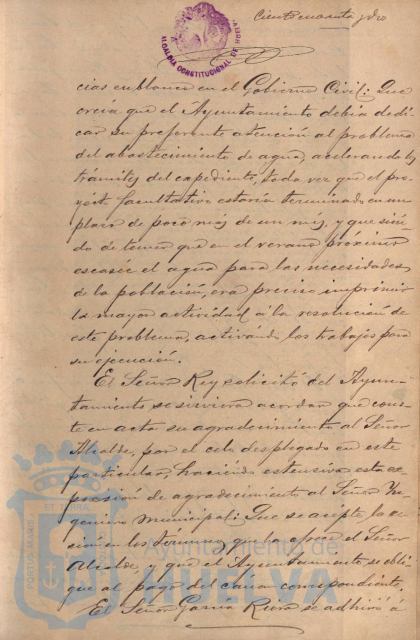 Ciento cuarenta y dos
ALCALDIA CONSTITUCIONAL DE HUELVA
cias en blanco en el Gobierno Civil: Que
creia que el Ayuntamiento debia dedi
car su preferente atención al problema
del abastecimiento de agua, acelerando los
trámites del expediente, toda vez que el pro
yecto facultativo estaria terminado en un
plazo de poco más de un mes, y que sien
do de temer que en el verano próximo
escasée el agua para las necesidades
de la población, era preciso imprimir
la mayor actividad á la resolución de
este problema, activando los trabajos para
su ejecución.
El Señor Rey solicitó del Ayun-
tamiento se sirviera acordar que cons
te en acta su agradecimiento al Señor
Alcalde, por el celo desplegado en este
particular, haciendo estensiva esta ex
presión de agradecimiento al Señor In
geniero municipal: Que se acepte la ce
sión en los terminos que la ofrece el Señor
Alcalde, y que el Ayuntamiento se obli
que al pago del canon correspondiente.
El Señor Garcia Rivera se adhirió á
Ayuntamiento de
HUELVA
PORTUS MARIS ET TERRÆ